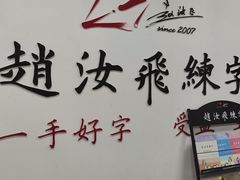 since 2007
趙汝飛練字
一手好字 受
趙汝飛練字